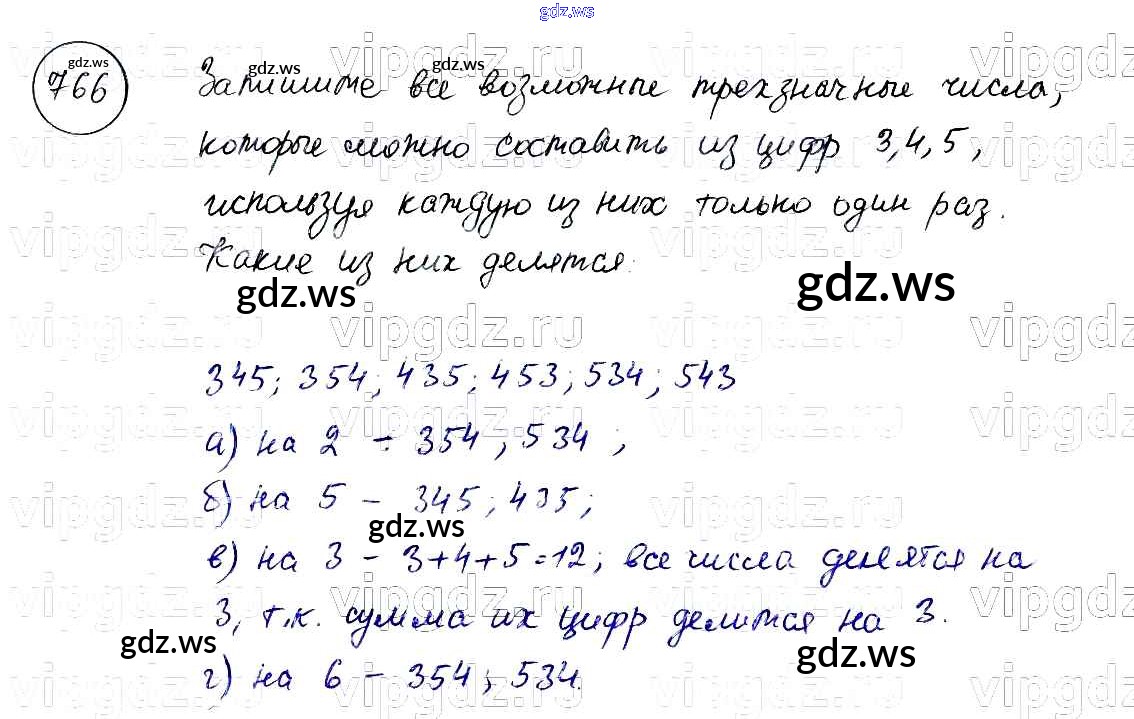 gdz.ws
766 gdz.ws
Запишите все возможные трехзначные числа,
gdz.ws gdz.ws
которые можно составить из цифр 3,4,5,
используя каждую из них только один раз.
Какие из них делятся:
gdz.ws gdz.ws
vipgdz.ru vipgdz.ru vipgdz.ru vipgdz
345; 354; 435; 453; 534; 543
а) на 2 - 354, 534;
б) на 5 - 345; 435;
gdz.ws
в) на 3 - 3+4+5=12; все числа делятся на
3, т.к. сумма их цифр делится на 3.
gdz.ws gdz.ws
г) на 6 - 354; 534.